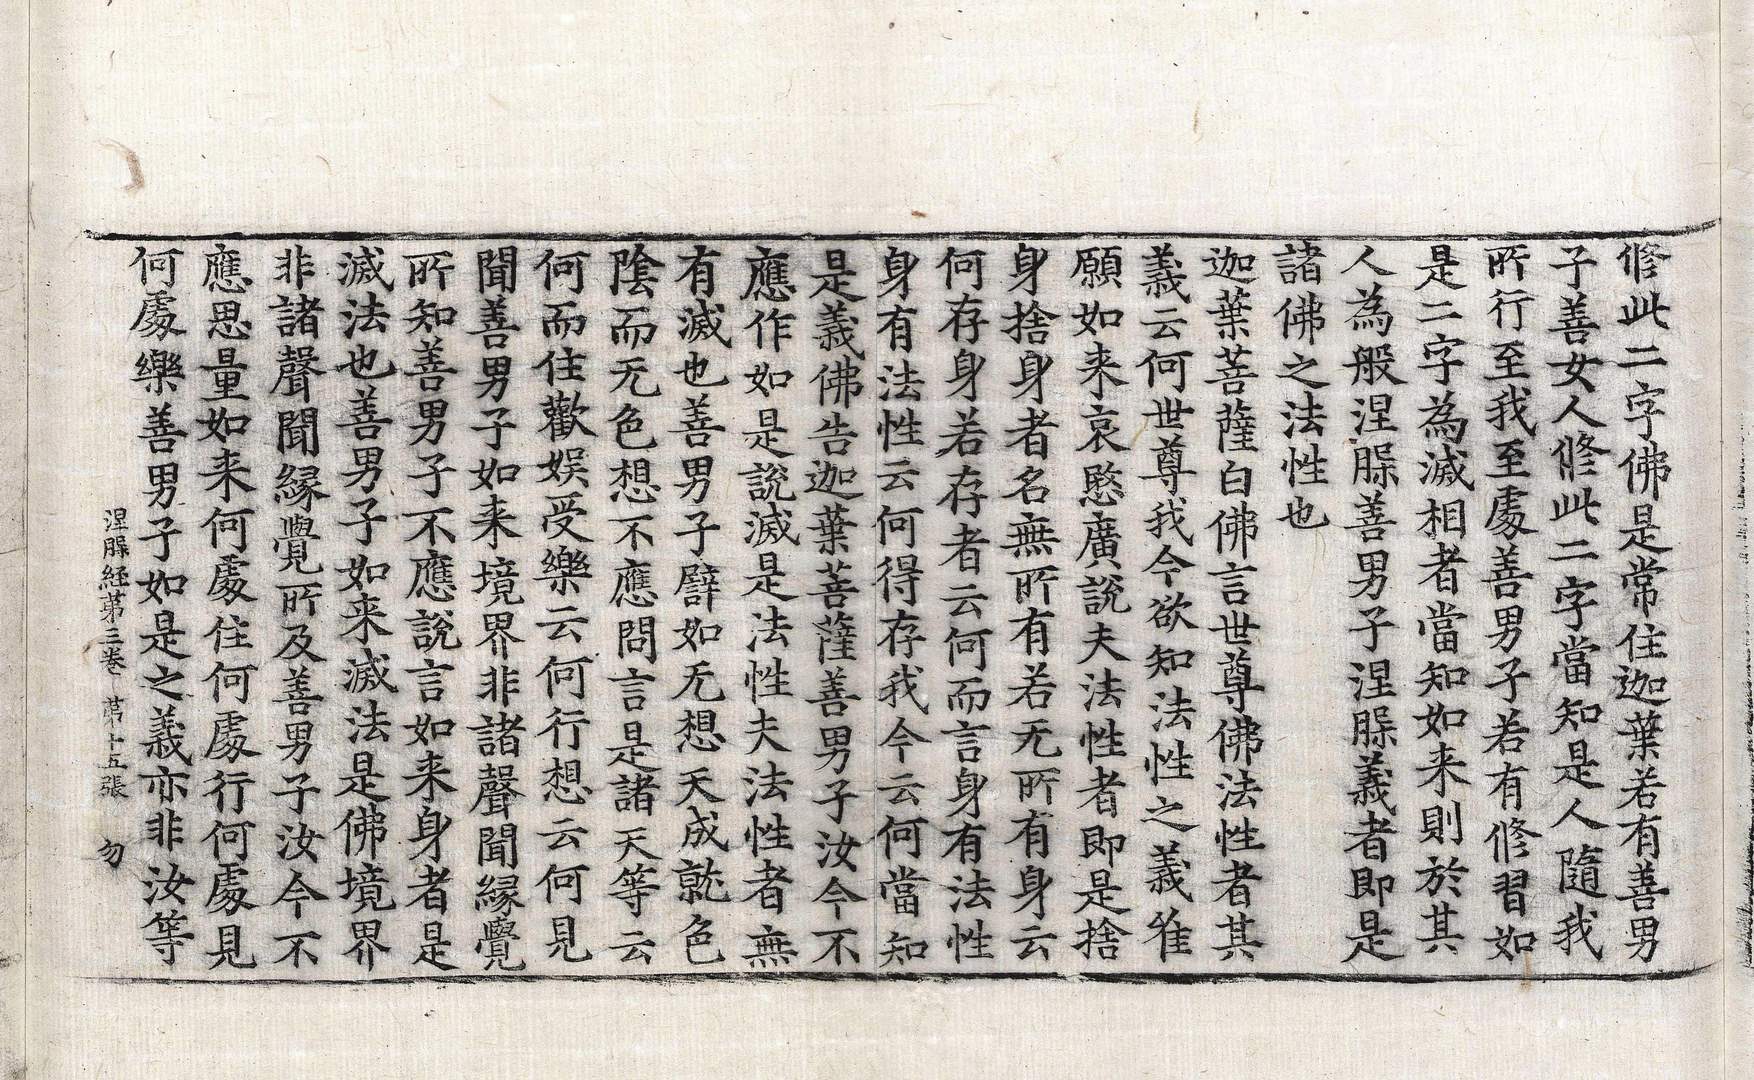 修此二字佛是常住迦葉若有善男
子善女人修此二字當知是人隨我
所行至我至處善男子若有修習如
是二字為滅相者當知如来則於其
人為般涅槃善男子涅槃義者即是
諸佛之法性也
迦葉菩薩白佛言世尊佛法性者其
義云何世尊我今欲知法性之義唯
願如来哀愍廣說夫法性者即是捨
身捨身者名無所有若无所有身云
何存身若存者云何而言身有法性
身有法性云何得存我今云何當知
是義佛告迦葉菩薩善男子汝今不
應作如是說滅是法性夫法性者無
有滅也善男子譬如无想天成就色
陰而无色想不應問言是諸天等云
何而住歡娛受樂云何行想云何見
聞善男子如来境界非諸聲聞緣覺
所知善男子不應說言如来身者是
滅法也善男子如来滅法是佛境界
非諸聲聞緣覺所及善男子汝今不
應思量如来何處住何處行何處見
何處樂善男子如是之義亦非汝等
涅槃経第三卷 第十五張 勿